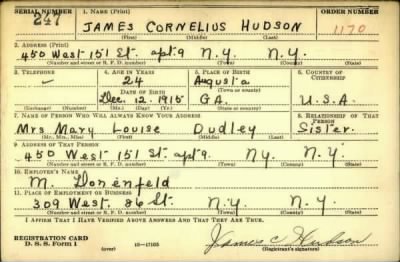 SERIAL NUMBER 1. NAME (Print) ORDER NUMBER
247 JAMES CORNELIUS HUDSON 1170
(First) (Middle) (Last)
2. ADDRESS (Print)
450 West 151 St. apt 9 N.Y. N.Y.
(Number and street or R. F. D. number) (Town) (County) (State)
3. TELEPHONE 4. AGE IN YEARS 5. PLACE OF BIRTH 6. COUNTRY OF CITIZENSHIP
24 Augusta
(Town or county)
DATE OF BIRTH
Dec. 12, 1915 GA. U.S.A.
(Exchange) (Number) (Mo.) (Day) (Yr.) (State or country)
7. NAME OF PERSON WHO WILL ALWAYS KNOW YOUR ADDRESS 8. RELATIONSHIP OF THAT PERSON
Mrs Mary Louise Dudley Sister.
(Mr., Mrs., Miss) (First) (Middle) (Last)
9. ADDRESS OF THAT PERSON
450 West 151 St apt 9. N.Y. N.Y.
(Number and street or R. F. D. number) (Town) (County) (State)
10. EMPLOYER'S NAME
M.
11. PLACE OF EMPLOYMENT OR BUSINESS
309 West. 86 St. N.Y. N.Y.
(Number and street or R. F. D. number) (Town) (County) (State)
I AFFIRM THAT I HAVE VERIFIED ABOVE ANSWERS AND THAT THEY ARE TRUE.
REGISTRATION CARD
D. S. S. Form 1 (over) 16-17105 James C Hudson
(Registrant's signature)